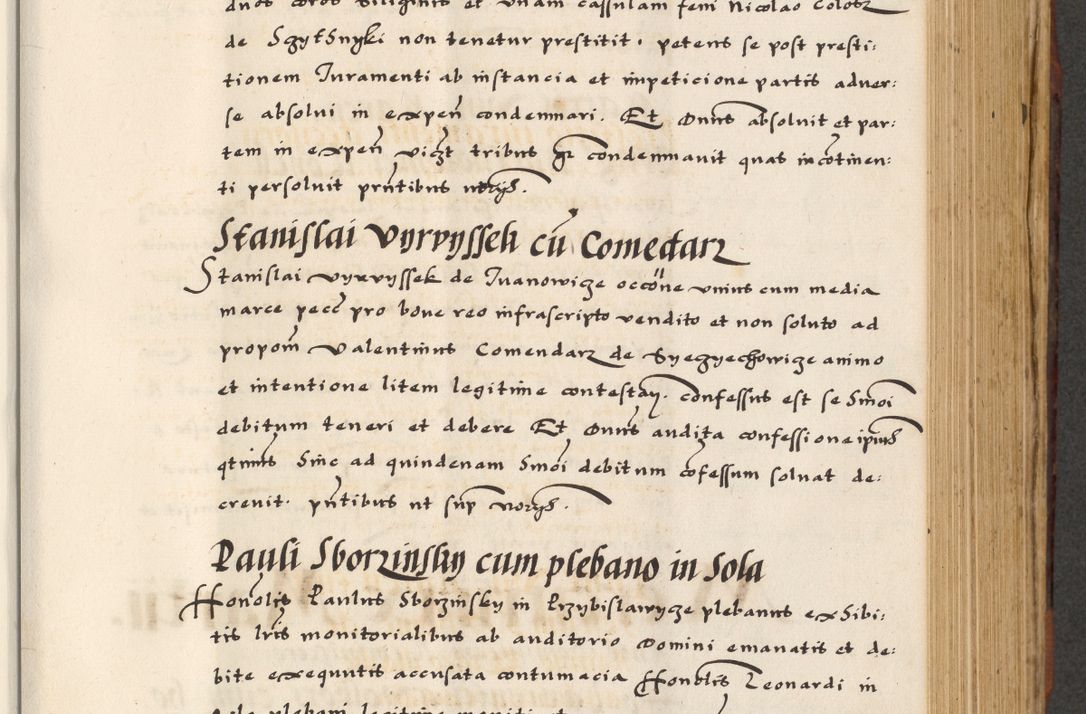 duos coros siliginis et unam cassulam feni Nicolao Coloσ
de SzytSnyki non tenetur prestitit. petens se post presti:
tionem Juramenti ab instancia et impeticione partis adver:
se absolui in expen̄ condemnari. Et Dnūs absoluit et par:
tem in expen̄ vicz̄t tribus gr̄ condemnauit quas incōtinen:
ti persoluit prn̄tibus
Stanislai Vyrvyssek cū Comedarz
Stanislai vyrvyssek de Iuanowicze occōne unius cum media
marce pecc̄ pro boue reo infrascripto vendito et non soluto ad
propom̄ Valentinus Comendarz de Syegyechowicze animo
et intentione litem legitime contestan̄. confessus est se Sm̄oi
debitum teneri et debere Et Dnūs audita confessione ipius
qtinus Sinc ad quindenam Sm̄oi debitum cōfessum soluat de:
creuit. pn̄tibus ut sup̄
Pauli Sborzinsky cum plebano in Sola
Honōlis Paulus Sborzinsky in Przybislawycze plebanus exSibi:
tis lr̄is monitorialibus ab auditorio Domini emanatis et de:
bite exequutis accusata contumacia Honōlis Leonardi in
Sola plebani legitime moniti et